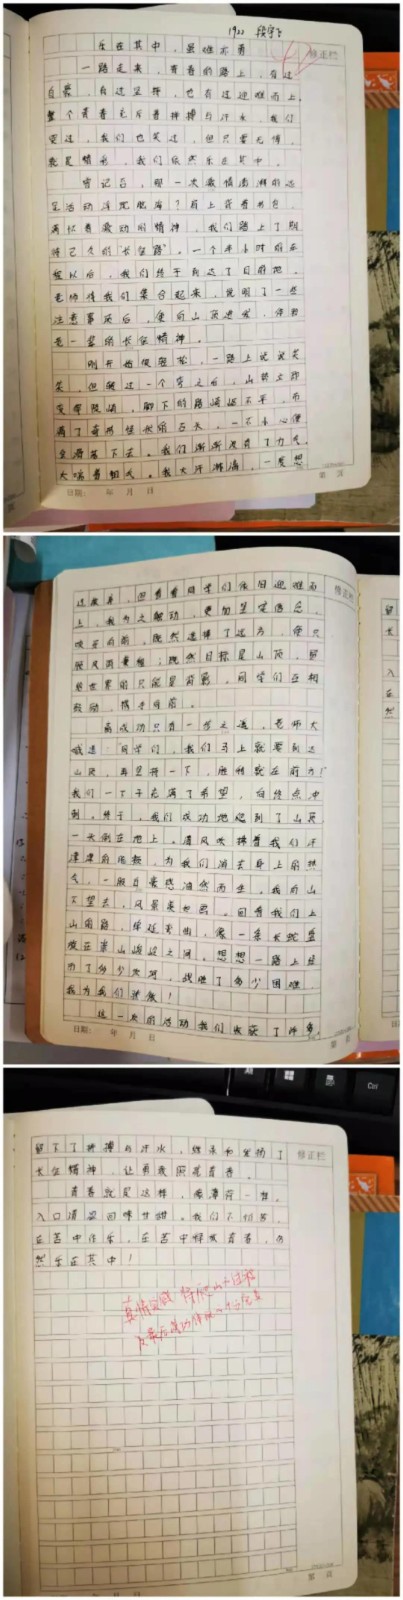 1922
乐在其中,虽难亦勇
修正栏
一路走来,青春的路上,有过
自豪,有过坚持,也有过迎难而上。
整个青春充斥着拼搏与汗水,我们
哭过,我们也笑过,但只要无悔,
就是精彩,我们依然乐在其中。
曾记否,那一次激情澎湃的远
足活动
肩上背着书包,
满怀着激动的精神,我们踏上了期
待已久的“长征路”。一个半小时的车
程以后,我们终于到达了目的地。
老师待我们集合起来,说明了一些
注意事项后,便向山顶进发,体验
走一空的长征精神。
刚开始很轻松,一路上说说笑
笑,但绕过一个弯之后,山势立即
变得陡峭,脚下的路崎岖不平,布
满了奇形怪状的石头,一不小心便
会滑落下去。我们渐渐没有了力气,
大喘着粗气。我大汗淋漓,一度想
日期: 年 月 日
第 页
过放弃,但看着同学们依旧迎难而
修正栏
上,我为之触动,更加坚定信念,
咬牙向前。既然选择了远方,便只
顾风雨兼程;既然目标是山顶,留
给世界的只能是背影。同学们互相
鼓励,携手向前。
离成功只有一步之遥,老师大
喊道:“同学们,我们马上就要到达
山顶,再坚持一下,胜利就在前方!”
我们一下子充满了希望,向终点冲
刺。终于,我们成功地爬到了山顶,
一头倒在地上。清风吹拂着我们汗
津津的面颊,为我们消去身上的热
气,一股自豪感油然而生。我向山
下望去,风景美如画。回看我们上
山的路,绵延更曲,像一条长蛇盘
旋在崇山峻岭之间。想想一路上经
历了多少坎坷,战胜了多少困难,
我为我们骄傲!
这一次的活动我们收获了许多,
日期: 年 月 日
第 页
留下了拼搏与汗水,继承和发扬了
修正栏
长征精神,让勇我照亮青春。
青春就是这样,像薄荷一样,
入口清凉回味甘甜。我们不怕苦,
在苦中作乐,在苦中释放青春,仍
然乐在其中!
真情实感
月 日
第 页
Ctrl